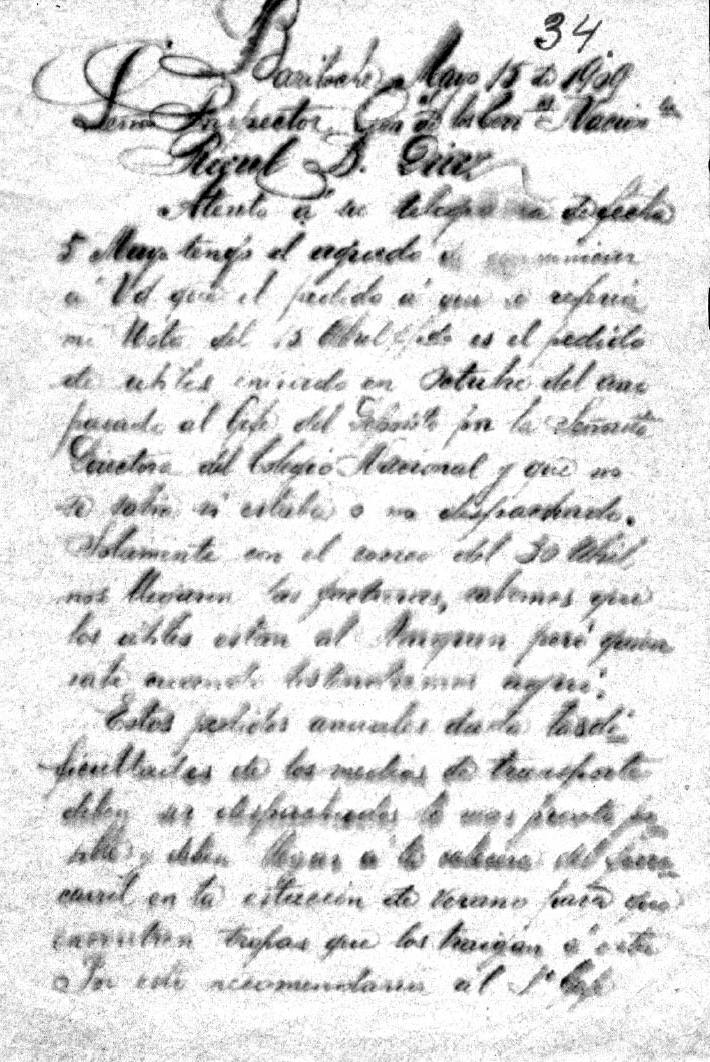 34
Bariloche, Mayo 15 de 1909
Señor Inspector Gral de las Nacion
Raul B. Diaz
Atento á su telegrama de fecha
5 Mayo tengo el agrado de comunicar
á Vd que el pedido á que se referia
mi Nota del 15 Abril ppdo es el pedido
de utiles enviado en Octubre del año
pasado al Gefe del Deposito por la Señorita
Directora del Colegio Nacional y que no
se sabia si estaba o no despachado.
Solamente con el correo del 30 Abril
nos llegaron las facturas, sabemos que
los útiles estan al Neuquen peró quien
sabe cuando los tendremos aqui.
Estos pedidos anuales dada las di
ficultades de los medios de transporte
deben ser despachados lo mas pronto po
sible y deben llegar á la cabecera del ferro
carril en la estacion de verano para que
encuentren tropas que los traigan á esta
Por esto recomendaria al Sr Gefe